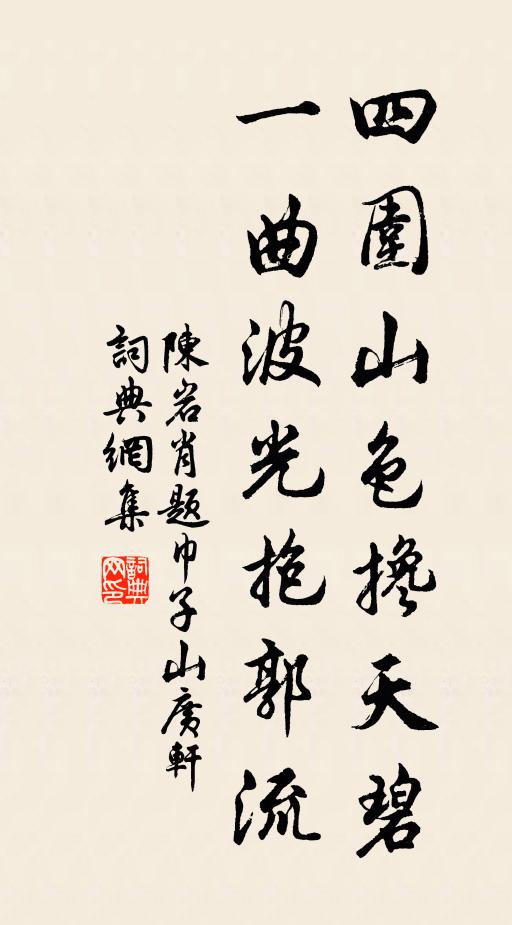 四圍山色攙天碧
一曲波光抱郭流
陳岩肖題巾子山廣軒
詞典網集
詞典网印